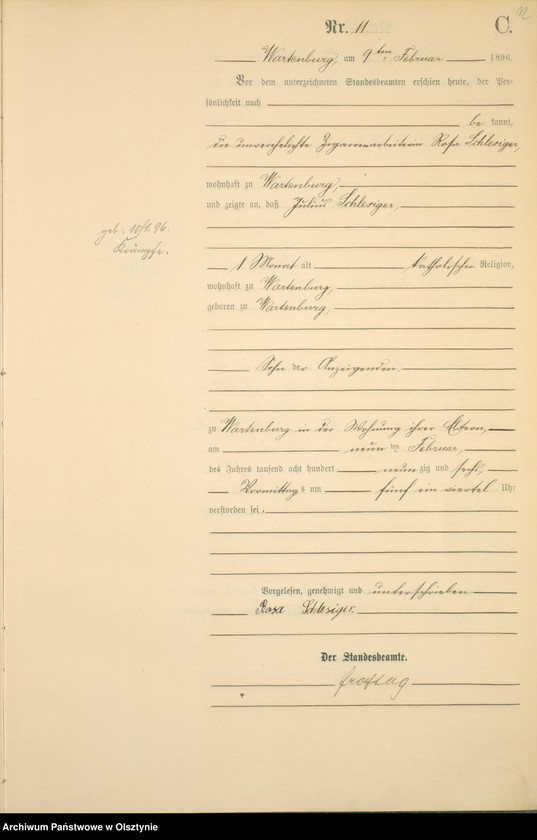 Nr. 11 C. 12
Wartenburg, am 9ten Februar 1896.
Vor dem unterzeichneten Standesbeamten erschien heute, der Per-
sönlichkeit nach
be kannt,
die unverehelichte Zigarrenarbeiterin Rosa Schlesiger,
wohnhaft zu Wartenburg,
und zeigte an, daß Julius Schlesiger,
geb: 10/1. 96.
Krämpfe.
1 Monat alt katholischer Religion,
wohnhaft zu Wartenburg,
geboren zu Wartenburg,
Sohn der Anzeigenden
zu Wartenburg in der Wohnung ihrer Eltern,
am neun ten Februar,
des Jahres tausend acht hundert neun zig und sechs,
Vormittag s um fünf ein viertel Uhr
verstorben sei.
Vorgelesen, genehmigt und unterschrieben
Rosa Schlesiger.
Der Standesbeamte.
Archiwum Państwowe w Olsztynie